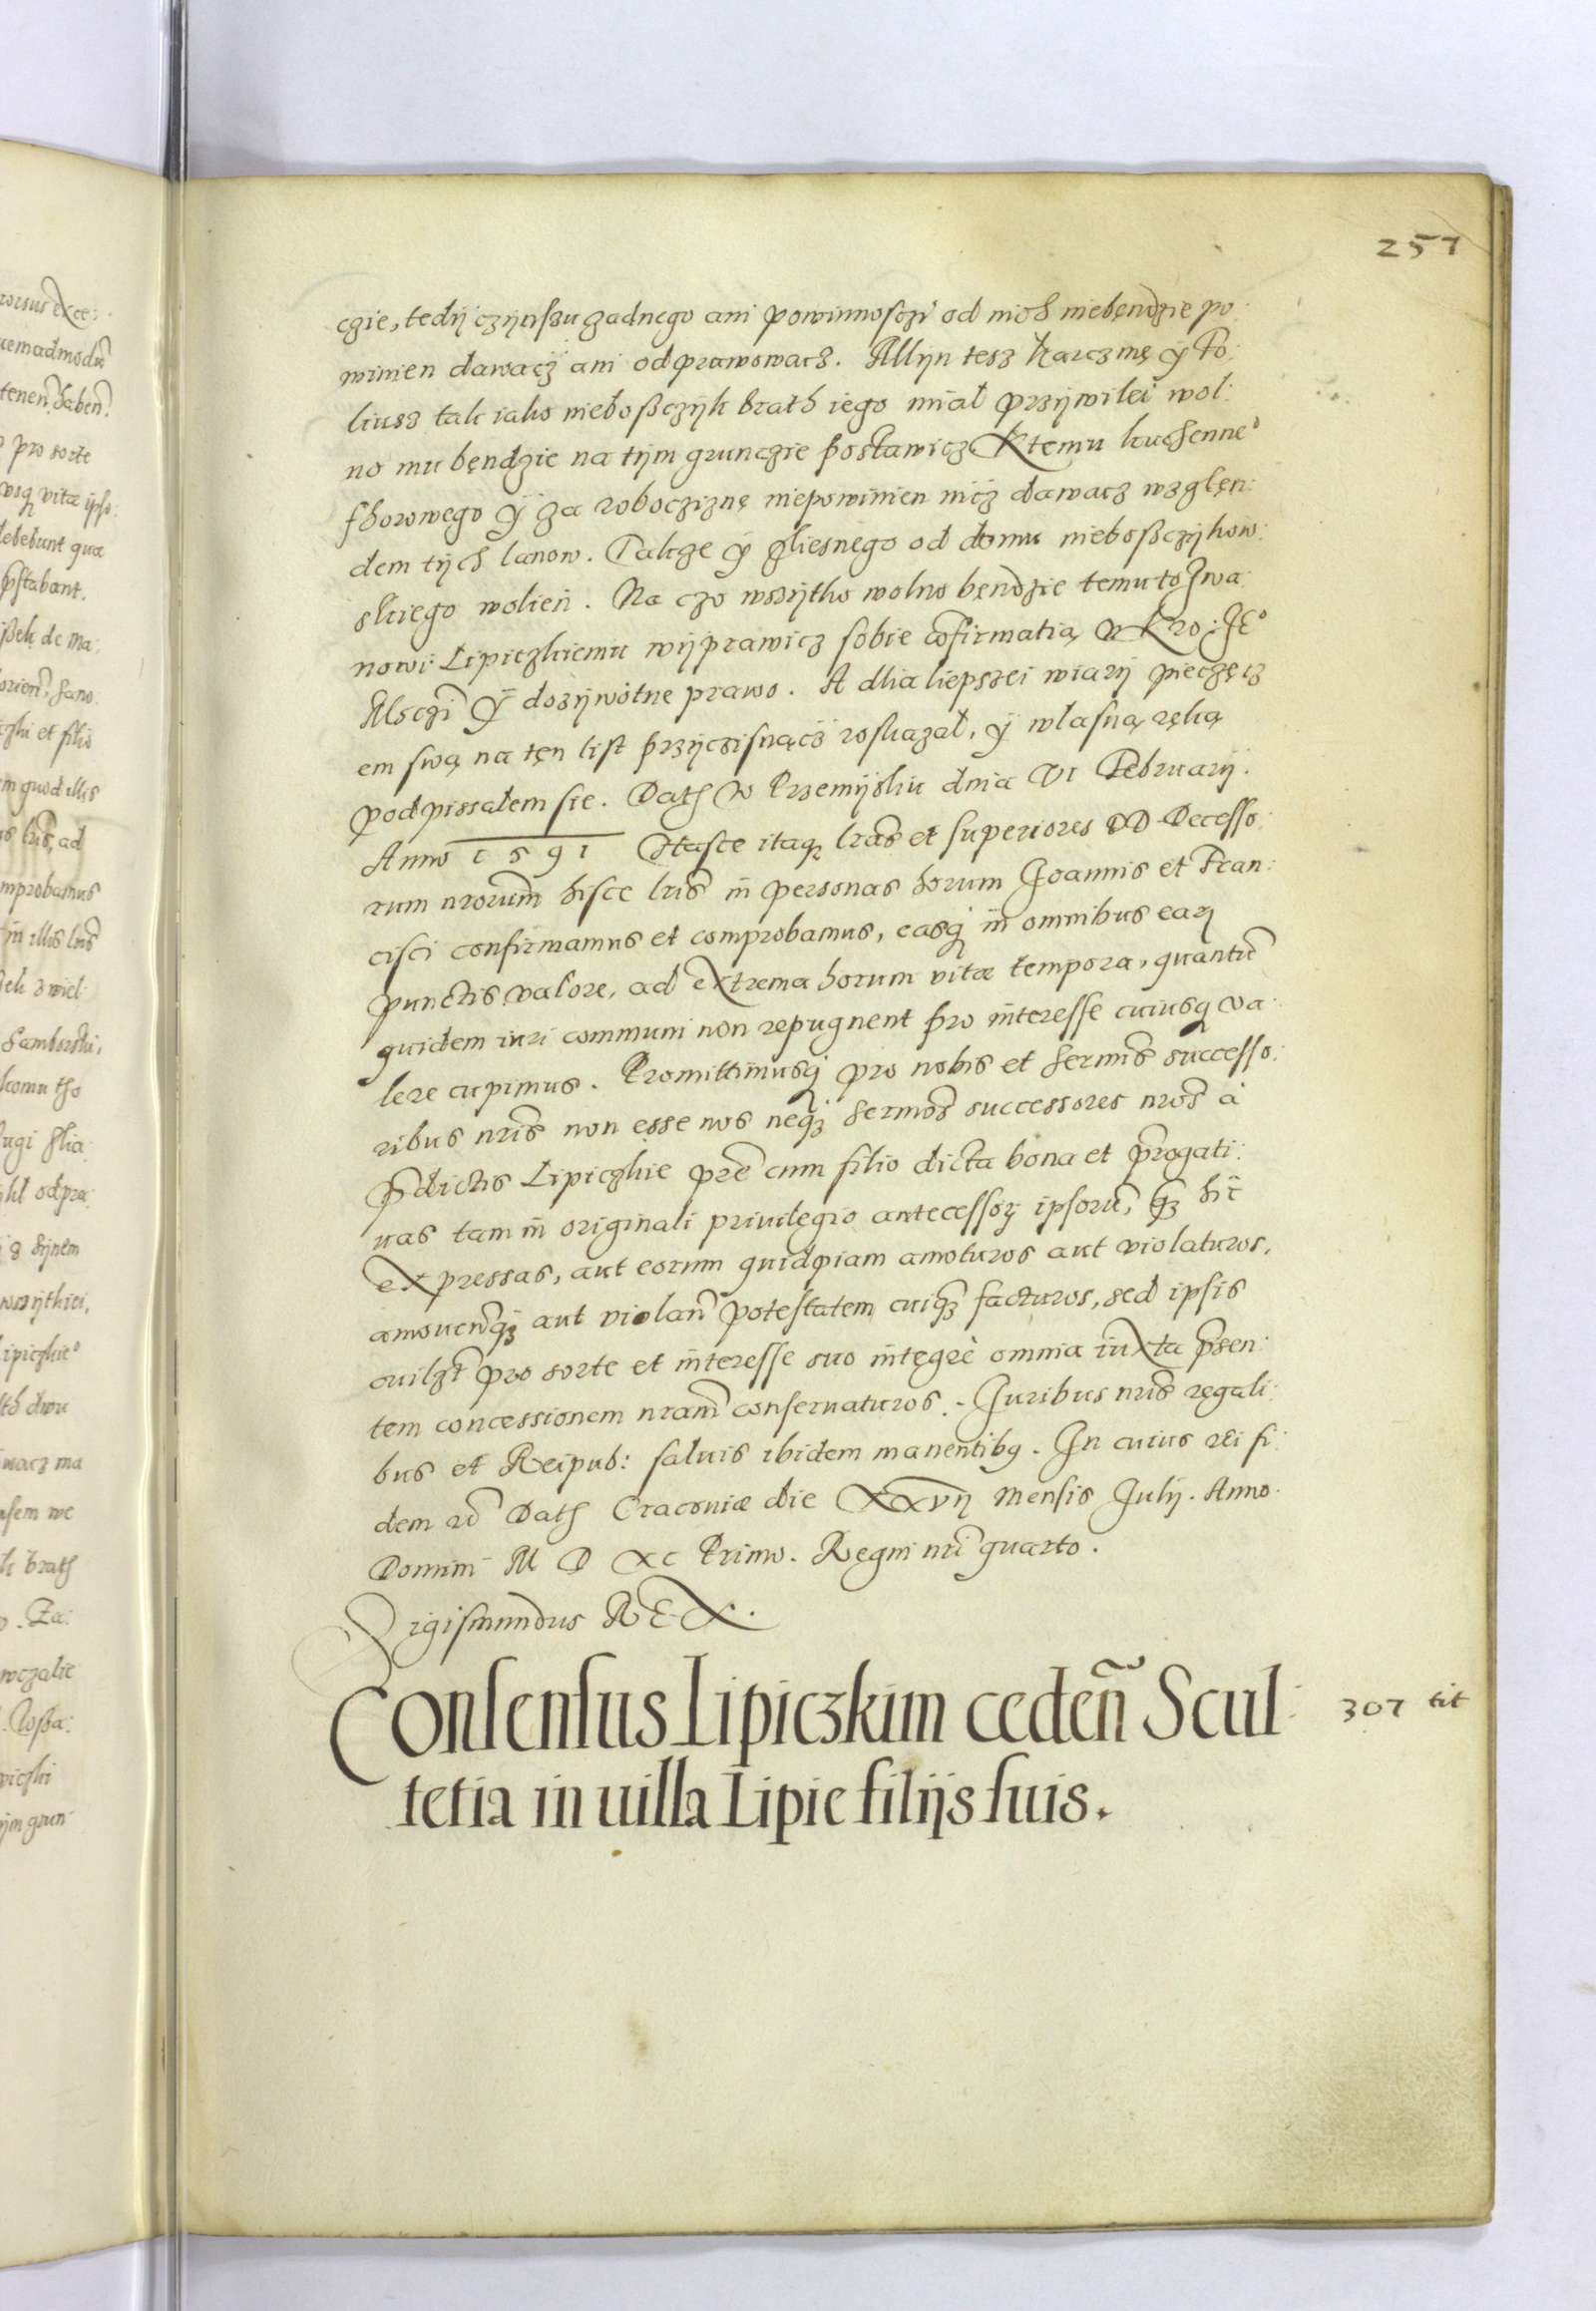 257
czie, tedÿ czÿnßu zadnego ani powinnosczi od nich niebęndzie po:
winien dawacz ani odprawowacz. Mlÿn tesz karczmę ÿ Fo:
liusz tak iako nieboßczÿk brath iego miał przÿwilei wol:
no mu bęndzie na tÿm grunczie postawicz. K temu kuchenneº
sborowego ÿ za robocziznę niepowinien nicz dawacz wzglęn:
dem tÿch lanow. Takze ÿ gliesnego od domu nieboßczÿkow:
skiego wolien. Na czo wszÿtko wolno bęndzie temuto Jwa:
nowi Lipiczkiemu wÿprawicz sobie cõfirmatią v Kro: JEº
Msczi ÿ dozÿwotne prawo. A dlia liepszei wiarÿ pieczęcz
em swą na tęn list przÿczisnącz roskazał, ÿ własną ręką
podpissałem sie. Dath w Przemÿsliu dnia VI Februarij.
Anno 1591 Hasce itaqꝫ lr̃as et superiores DD Decesso:
rum nrorum̃ hisce lris̃ in personas horum Joannis et Fran:
cisci confirmamus et comprobamus, easqꝫ in omnibus earꝝ
punctis valore, ad extrema horum vitæ tempora, quantũ
quidem iuri communi non repugnent pro interesse cuiusqꝫ va:
lere cupimus. Promittimusqꝫ pro nobis et Sermis̃ successo:
ribus nris̃ non esse nos neqꝫ Sermos̃ successores nros̃ à
p̃dictis Lipiczkie pr̃e cum filio dicta bona et p̃rogati:
uas tam in originali priuilegio antecessorꝝ ipsorũ, qꝫ hic̃
expressas, aut eorum quidpiam amoturos aut violaturos,
amouendiq̃ꝫ aut violañ potestatem cuiqꝫ facturos, sed ipsis
cuilꝫt̃ pro sorte et interesse suo integrè omnia iuxta p̃sen:
tem concessionem nram̃ conseruaturos. Juribus nris̃ regali:
bus et Reipub: saluis ibidem manentibꝰ. In cuius rei fi:
dem rc̃ Dath Cracouiæ die XXVII Mensis Julij. Anno
Domini M D XC Primo. Regni nri̇̃ quarto.
Sigismundus REX.
Consensus Lipiczkim cedeñ Scul: 307 tit
tetia in uilla Lipie filijs suis.